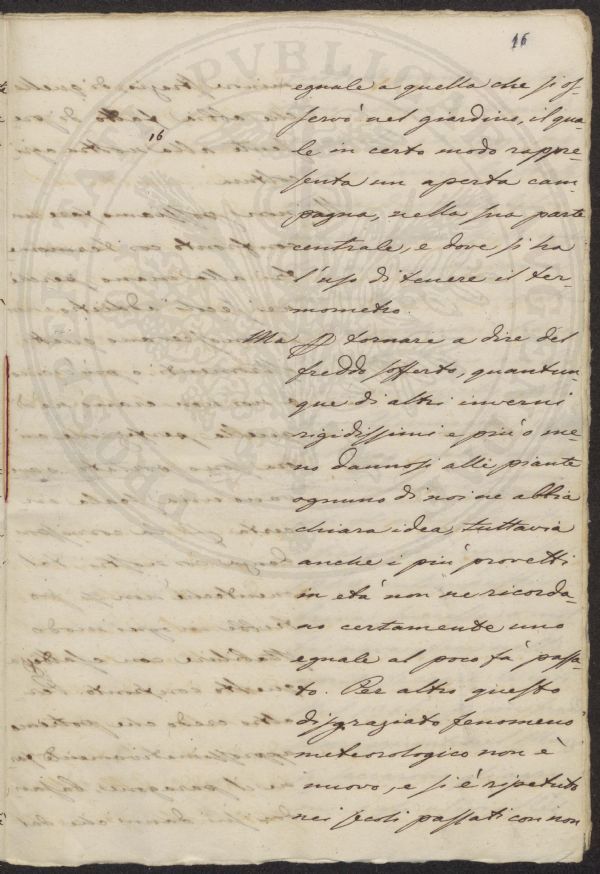 16
16
eguale a quella che si os-
servò nel giardino, il qua-
le in certo modo rappre-
senta un aperta cam
pagna, nella sua parte
centrale, e dove si ha
l'uso di tenere il ter-
mometro.
Ma p tornare a dire del
freddo sofferto, quantun-
que di altri inverni
rigidissimi e più o me-
no dannosi alle piante
ognuno di noi ne abbia
chiara idea, tuttavia
anche i più provetti
in età non ne ricorda-
no certamente uno
eguale al poco fà passa-
to. Per altro questo
disgraziato fenomeno
meteorologico non è
nuovo, e si è ripetuto
nei secoli passati con non